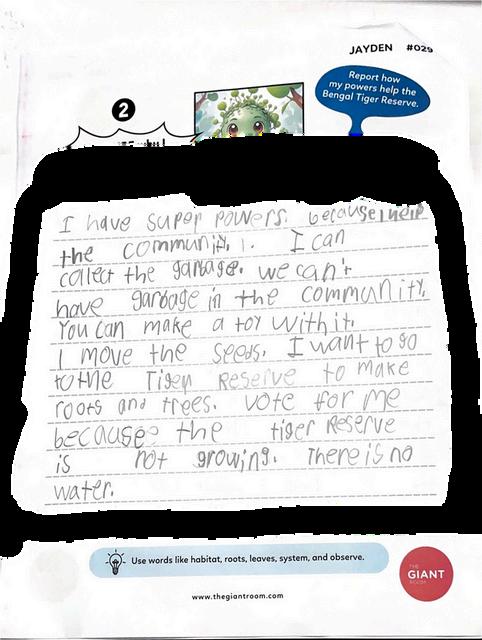 JAYDEN #029
Report how
my powers help the
Bengal Tiger Reserve.
2
I have super powers. because I help
the community. I can
collect the garbage. we can't
have garbage in the community.
You can make a toy with it.
I move the seeds. I want to go
to the Tiger Reserve to make
roots and trees. Vote for me
because the tiger Reserve
is not growing. There is no
water.
Use words like habitat, roots, leaves, system, and observe.
THE
GIANT
ROOM
www.thegiantroom.com